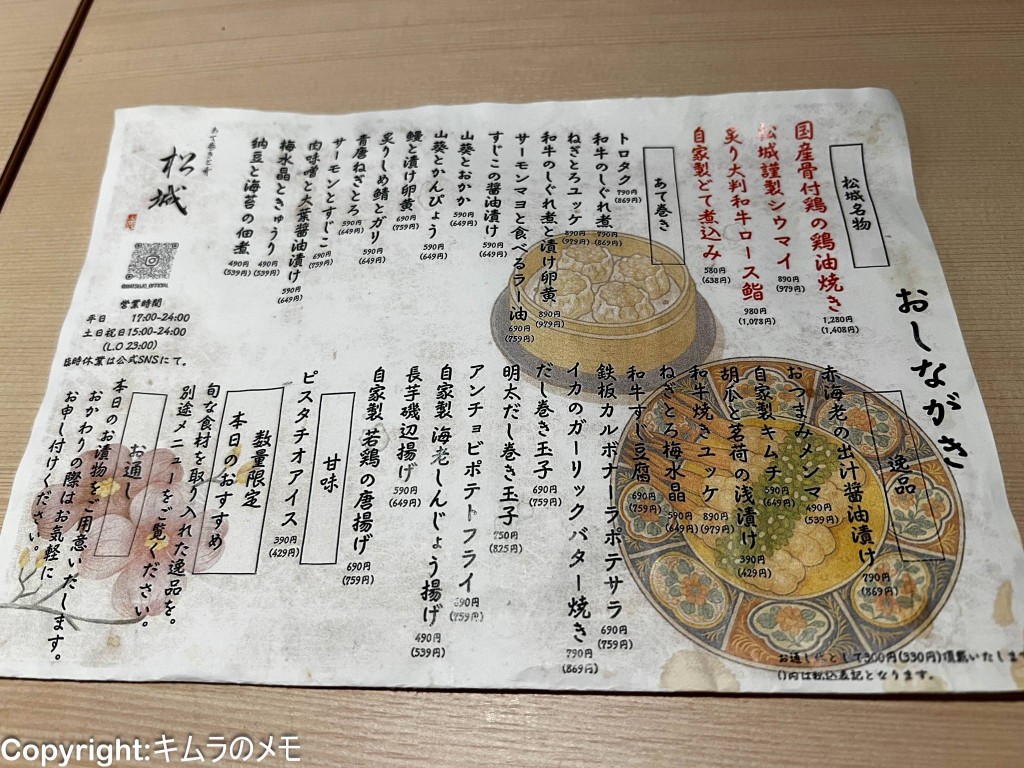 おしながき
松城名物
国産骨付鶏の鶏油焼き 1,280円 (1,408円)
松城謹製シウマイ 890円 (979円)
炙り大判和牛ロース鮨 980円 (1,078円)
自家製どて煮込み 580円 (638円)
あて巻き
トロタク 790円 (869円)
和牛のしぐれ煮 790円 (869円)
ねぎとろユッケ 890円 (979円)
和牛のしぐれ煮と漬け卵黄 890円 (979円)
サーモンマヨと食べるラー油 690円 (759円)
すじこの醤油漬け 590円 (649円)
山葵とおかか 590円 (649円)
山葵とかんぴょう 590円 (649円)
鰻と漬け卵黄 690円 (759円)
炙りしめ鯖とガリ 590円 (649円)
青唐ねぎとろ 590円 (649円)
サーモンとすじこ 690円 (759円)
肉味噌と大葉醤油漬け 590円 (649円)
梅水晶ときゅうり 490円 (539円)
納豆と海苔の佃煮 490円 (539円)
あて巻きと丼
松城
@MATSUJO_OFFICIAL
営業時間
平日 17:00-24:00
土日祝日15:00-24:00
(L.O 23:00)
臨時休業は公式SNSにて。
逸品
赤海老の出汁醤油漬け 790円 (869円)
おつまみメンマ 490円 (539円)
自家製キムチ 590円 (649円)
胡瓜と茗荷の浅漬け 390円 (429円)
和牛焼きユッケ 890円 (979円)
ねぎとろ梅水晶 590円 (649円)
和牛すじ豆腐 690円 (759円)
鉄板カルボナーラポテサラ 690円 (759円)
イカのガーリックバター焼き 790円 (869円)
だし巻き玉子 690円 (759円)
明太だし巻き玉子 750円 (825円)
アンチョビポテトフライ 690円 (759円)
自家製 海老しんじょう揚げ 490円 (539円)
長芋磯辺揚げ 590円 (649円)
自家製 若鶏の唐揚げ 690円 (759円)
甘味
ピスタチオアイス 390円 (429円)
数量限定
本日のおすすめ
旬な食材を取り入れた逸品を。
別途メニューをご覧ください。
お通し
本日のお漬物をご用意いたします。
おかわりの際はお気軽に
お申し付けください。
お通し代として300円(330円)頂戴いたします
()内は税込表記となります。
Copyright:キムラのメモ